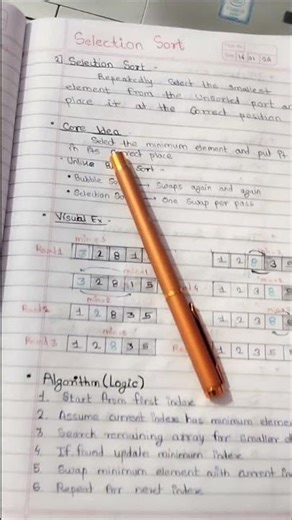 Selection Sort
2) Selection Sort -
Repeatedly Select the smallest
element from the unsorted part an
place it at the Correct position
• Core Idea
Select the minimum element and put it
in its Correct place
• Unlike Sort -
• Bubble → Swaps again and again
• Selection → One Swap per pass
• Visual Ex -
Round 1 3 2 8 1 1 2 8 3 5
3 2 8 1 5 1 2 3 8 5
Round 2 1 2 8 3 5 1 2 3 8
Round 3 1 2 8 3 5 1 2 3 5
• Algorithm (Logic)
1. Start from first index
2. Assume current index has minimum eleme
3. Search remaining array for smaller
4. If found update minimum index
5. Swap minimum element with current in
6. Repeat for next index